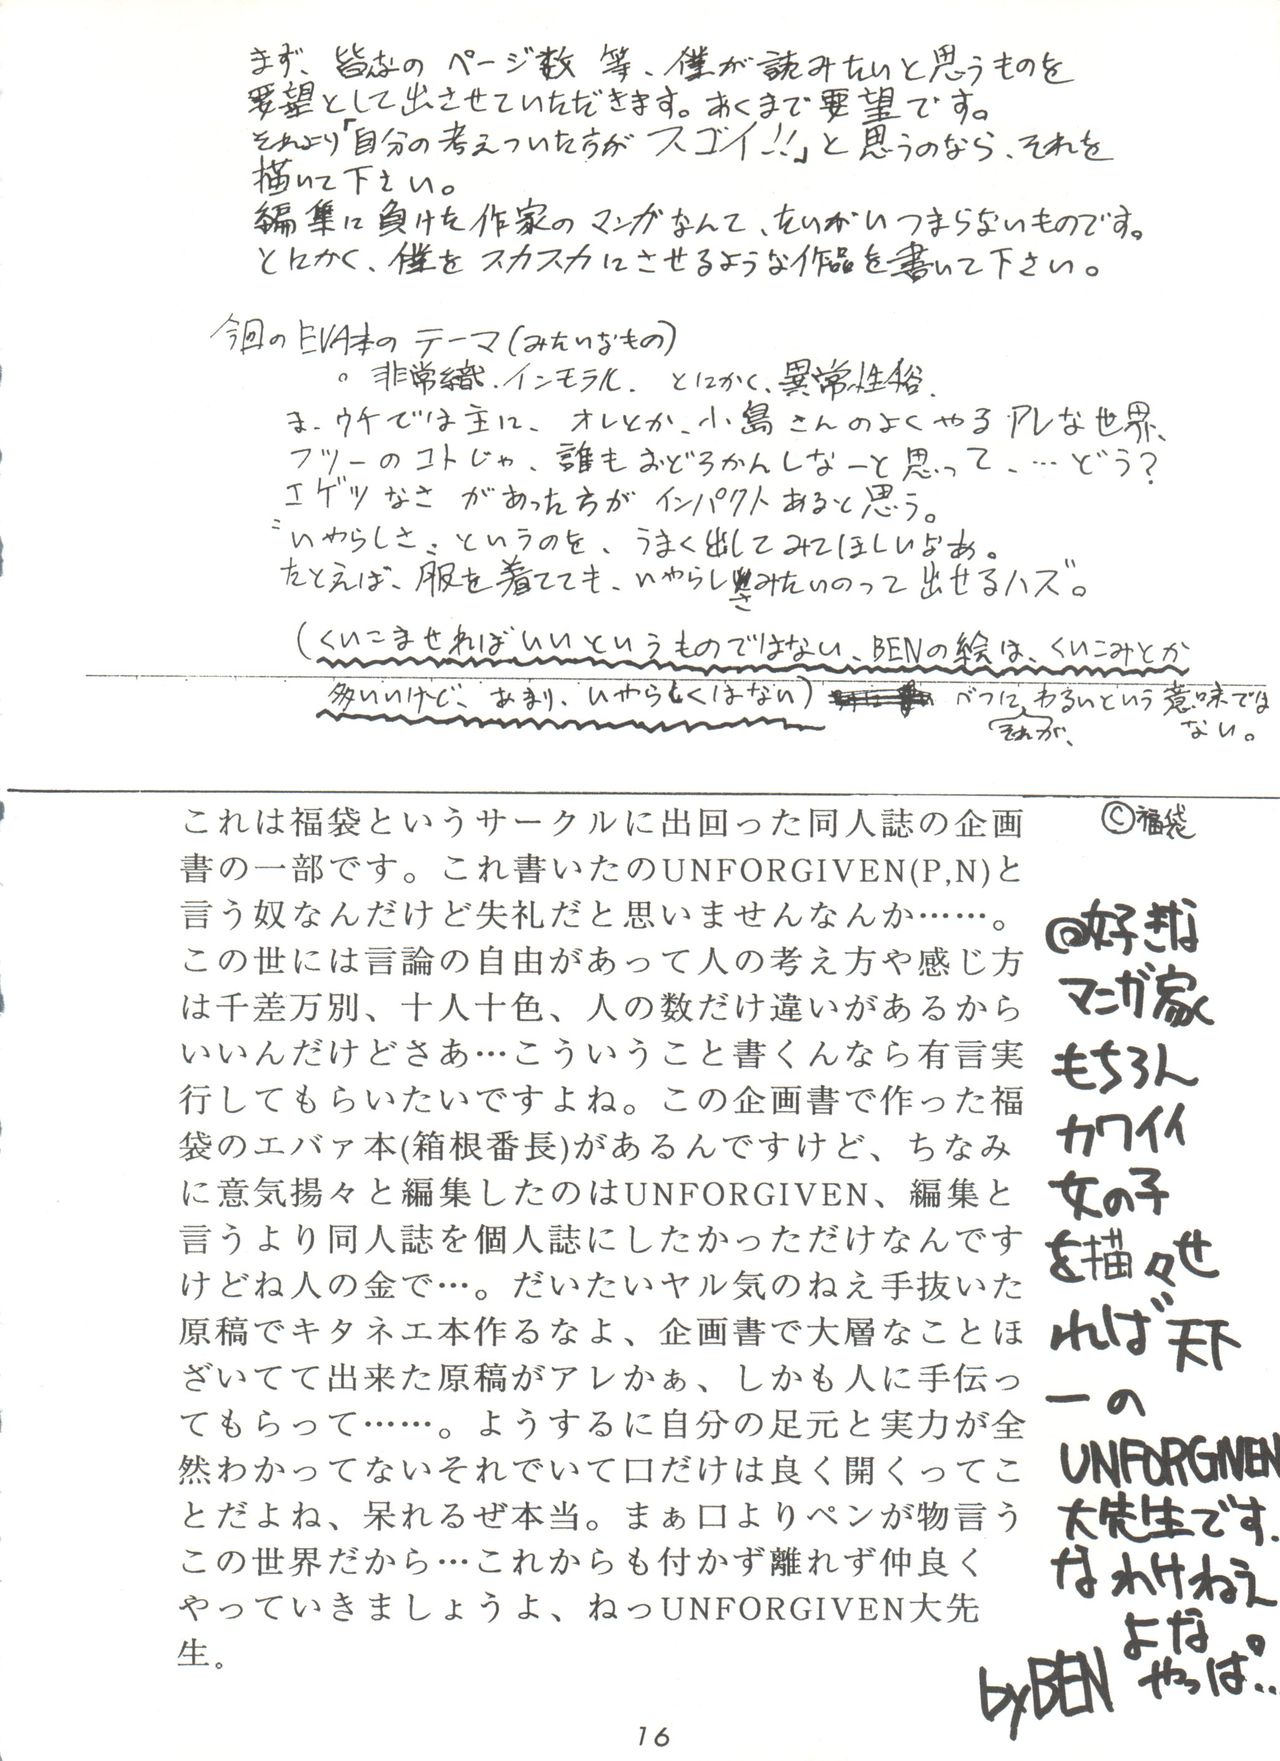 まず、皆なの ページ数 等、僕が読みたいと思うものを
要望として出させていただきます。あくまで要望です。
それより「自分の考えついた方が スゴイ!!」と思うのなら、それを
描いて下さい。
編集に負けた作家のマンガなんて、たいがいつまらないものです。
とにかく、僕を スカスカにさせるような作品を書いて下さい。
今回のEVA本の テーマ(みたいなもの)
。非常織.インモラル. とにかく、異常性俗.
ま、ウチでは主に、オレとか、小島さんのよくやる アレな世界、
フツーのコトじゃ、誰もおどろかんしなーと思って、…どう?
エゲツなさ があった方が インパクトあると思う。
"いやらしさ"というのを、うまく出してみてほしいなあ。
たとえば、服を着てても、いやらしさみたいのって出せるハズ。
(くいこませればいいというものではない、BENの絵は、くいこみとか
多いいけど、あまり、いやらしくはない) べつに、それが、わるいという意味では
ない。
これは福袋というサークルに出回った同人誌の企画
書の一部です。これ書いたのUNFORGIVEN(P,N)と
言う奴なんだけど失礼だと思いませんなんか……。
この世には言論の自由があって人の考え方や感じ方
は千差万別、十人十色、人の数だけ違いがあるから
いいんだけどさあ…こういうこと書くんなら有言実
行してもらいたいですよね。この企画書で作った福
袋のエバァ本(箱根番長)があるんですけど、ちなみ
に意気揚々と編集したのはUNFORGIVEN、編集と
言うより同人誌を個人誌にしたかっただけなんです
けどね人の金で…。だいたいヤル気のねえ手抜いた
原稿でキタネエ本作るなよ、企画書で大層なことほ
ざいてて出来た原稿がアレかぁ、しかも人に手伝っ
てもらって……。ようするに自分の足元と実力が全
然わかってないそれでいて口だけは良く開くってこ
とだよね、呆れるぜ本当。まぁ口よりペンが物言う
この世界だから…これからも付かず離れず仲良く
やっていきましょうよ、ねっUNFORGIVEN大先
生。
©福袋
@好きな
マンガ家
もちろん
カワイイ
女の子
を描々せ
れば天下
一の
UNFORGIVEN
大先生です.
なわけねえ
よな。
やっぱ…
byBEN
16